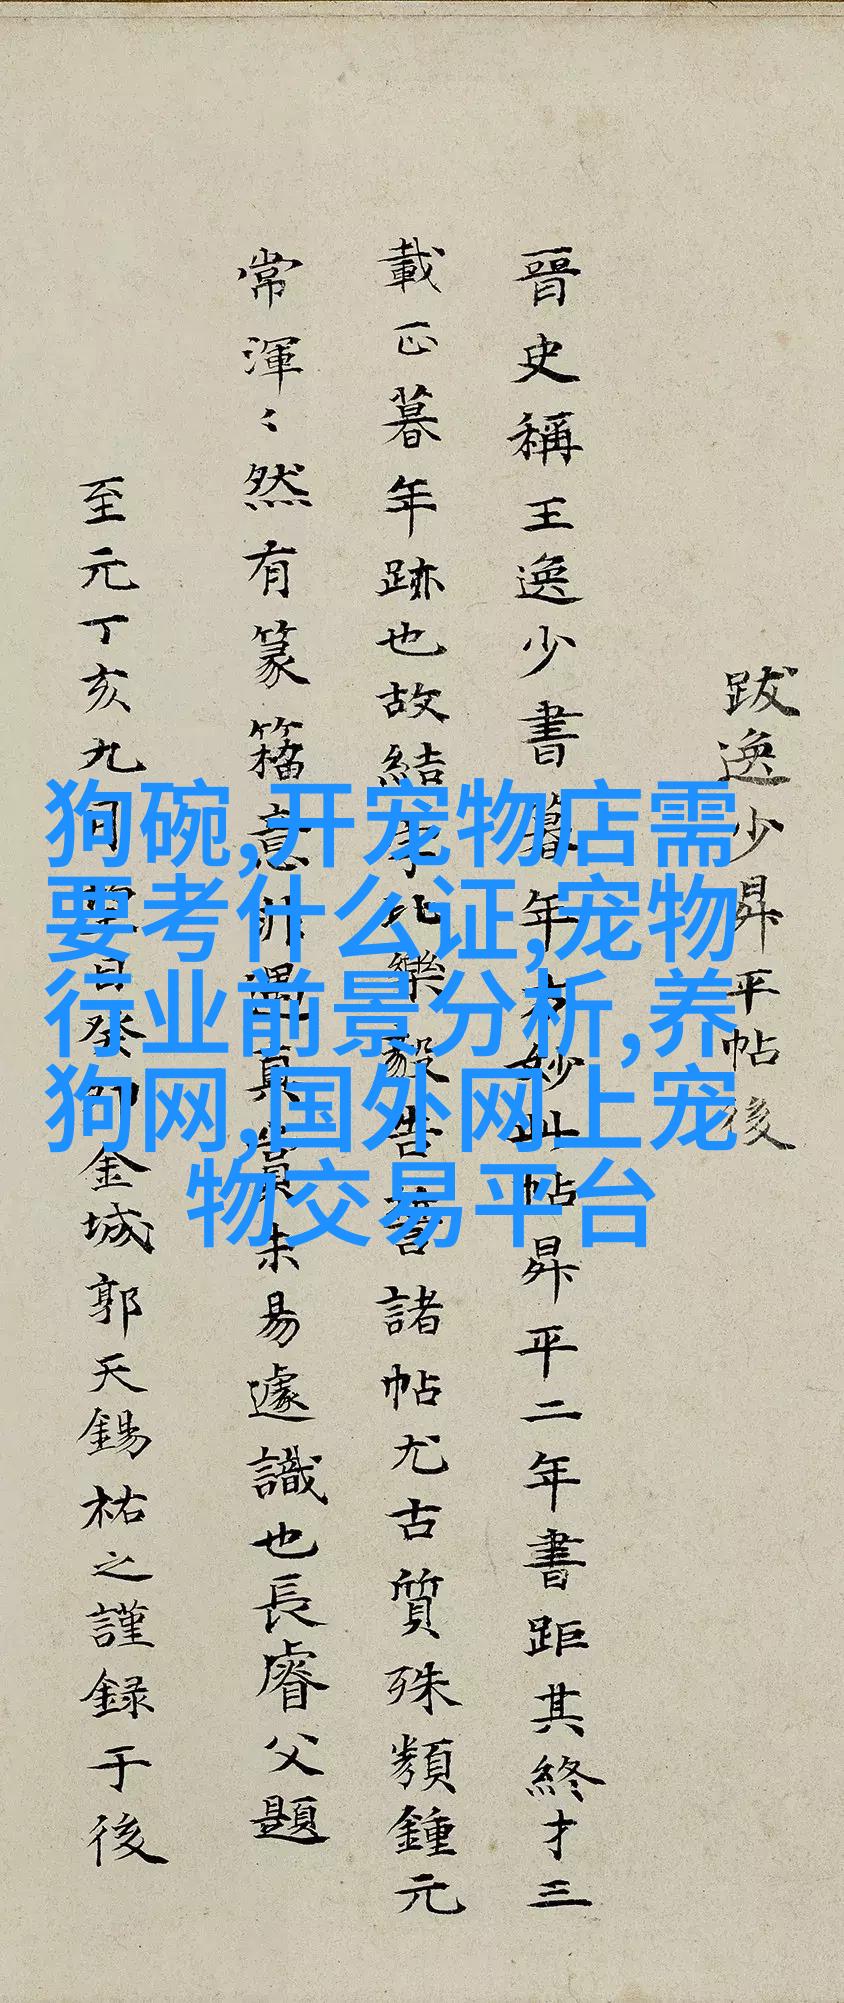 跋逸少昇平帖後
晉史稱王逸少書暮年方妙此帖昇平二年書距其終才三
載正暮年跡也故結字比樂毅告誓諸帖尤古質殊類鍾元
常渾〻然有篆籀意非遇真賞未易遽識也長睿父題
至元丁亥九月望日癸卯金城郭天錫祐之謹録于後
狗碗,开宠物店需
要考什么证,宠物
行业前景分析,养
狗网,国外网上宠
物交易平台